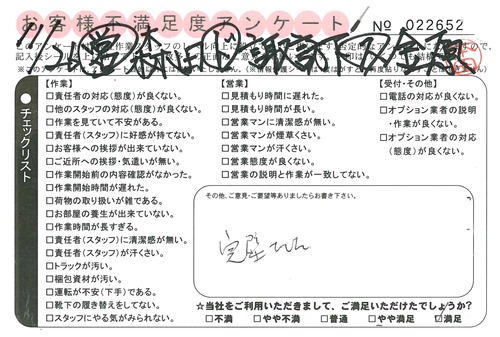 お客様不満足度アンケート
No 022652
チェックリスト
【作業】
□責任者の対応(態度)が良くない。
□他のスタッフの対応(態度)が良くない。
□作業を見ていて不安がある。
□責任者(スタッフ)に好感が持てない。
□お客様への挨拶が出来ていない。
□ご近所への挨拶・気遣いが無い。
□作業開始前の内容確認がなかった。
□作業開始時間が遅れた。
□荷物の取り扱いが雑である。
□お部屋の養生が出来ていない。
□作業時間が長すぎる。
□責任者(スタッフ)に清潔感が無い。
□責任者(スタッフ)が汗くさい。
□トラックが汚い。
□梱包資材が汚い。
□運転が不安(下手)である。
□靴下の履き替えをしてない。
□スタッフにやる気がみられない。
【営業】
□見積もり時間に遅れた。
□見積もり時間が長い。
□営業マンに清潔感が無い。
□営業マンが煙草くさい。
□営業マンが汗くさい。
□営業態度が良くない。
□営業の説明と作業が一致してない。
【受付・その他】
□電話の対応が良くない。
□オプション業者の説明
・作業が良くない。
□オプション業者の対応
(態度)が良くない。
その他、ご意見・ご要望等ありましたらお書き下さい。
完璧
☆当社をご利用いただきまして、ご満足いただけたでしょうか?
□不満 □やや不満 □普通 □やや満足 ☑満足